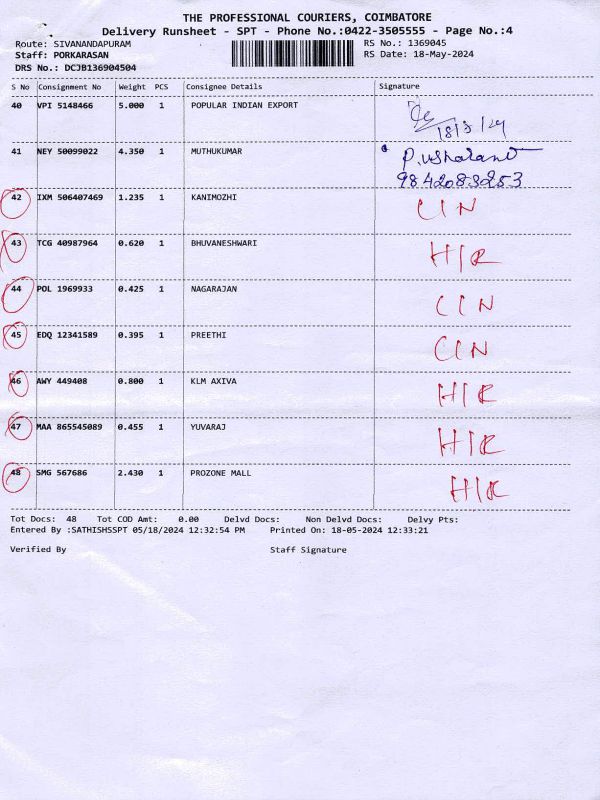 THE PROFESSIONAL COURIERS, COIMBATORE
Delivery Runsheet - SPT - Phone No.:0422-3505555 - Page No.:4
Route: SIVANANDAPURAM RS No.: 1369045
Staff: PORKARASAN RS Date: 18-May-2024
DRS No.: DCJB136904504
S No Consignment No Weight PCS Consignee Details Signature
40 VPI 5148466 5.000 1 POPULAR INDIAN EXPORT
18/5/24
41 NEY 50099022 4.350 1 MUTHUKUMAR
9842083253
42 IXM 506407469 1.235 1 KANIMOZHI CIN
43 TCG 40987964 0.620 1 BHUVANESHWARI HIR
44 POL 1969933 0.425 1 NAGARAJAN CIN
45 EDQ 12341589 0.395 1 PREETHI CIN
46 AWY 449408 0.800 1 KLM AXIVA HIR
47 MAA 865545089 0.455 1 YUVARAJ HIR
48 SMG 567686 2.430 1 PROZONE MALL HIR
Tot Docs: 48 Tot COD Amt: 0.00 Delvd Docs: Non Delvd Docs: Delvy Pts:
Entered By :SATHISHSSPT 05/18/2024 12:32:54 PM Printed On: 18-05-2024 12:33:21
Verified By Staff Signature